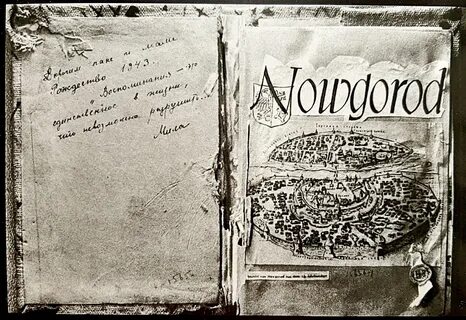 Дорогим папе и маме
Рождество 1943.
"Воспоминания – это
единственное в жизни,
что невозможно разрушить...
Мила
Nowgorod